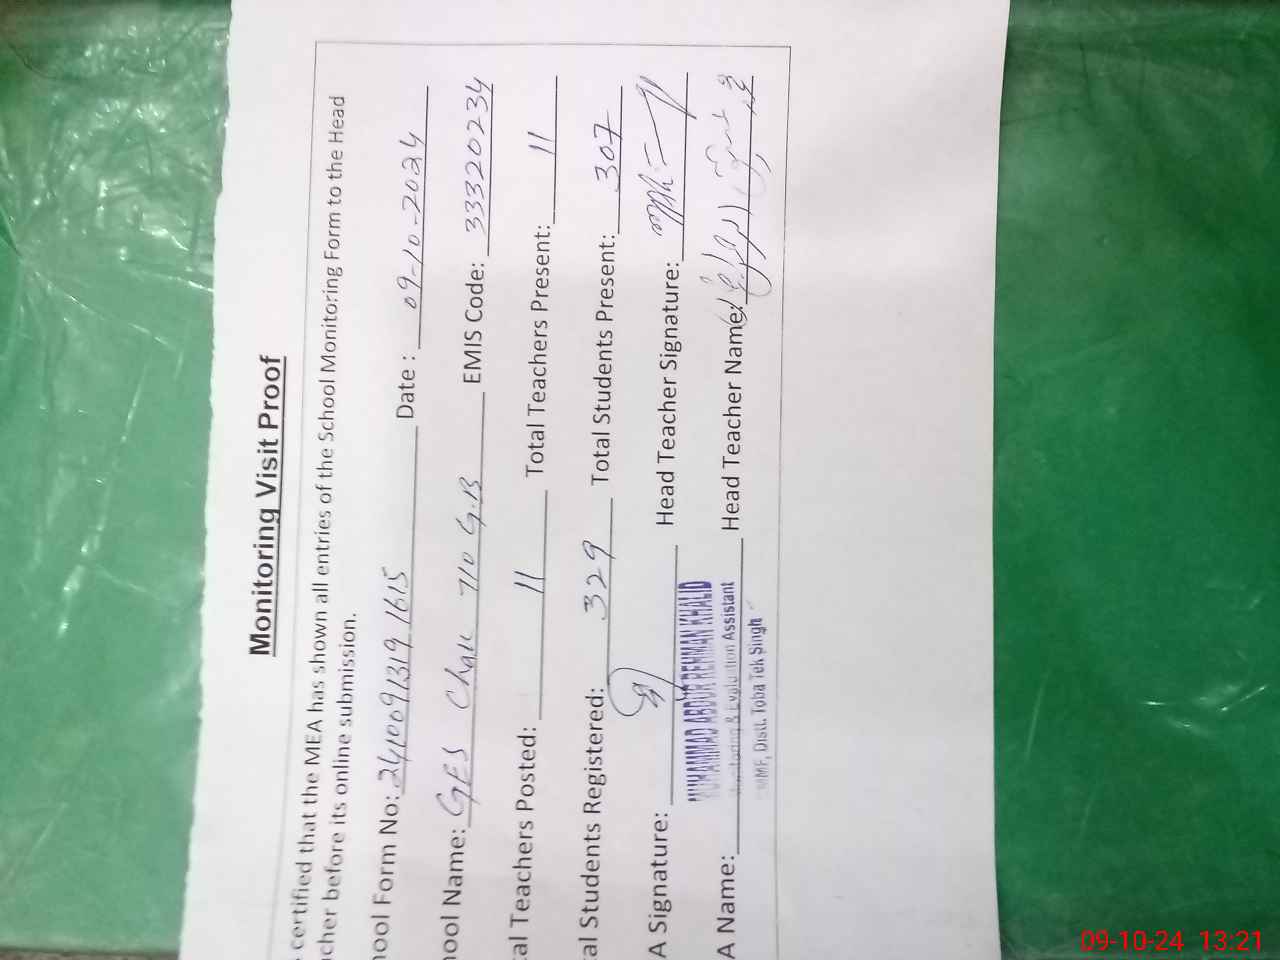 Monitoring Visit Proof
certified that the MEA has shown all entries of the School Monitoring Form to the Head
cher before its online submission.
ool Form No: 2410091319 1615 Date : 09-10-2024
ool Name: GES Chak 710 G.B EMIS Code: 33320234
al Teachers Posted: 11 Total Teachers Present: 11
al Students Registered: 329 Total Students Present: 307
A Signature: Head Teacher Signature:
MUHAMMAD ABDUR REHMAN KHALID
A Name: Monitoring & Evaluation Assistant Head Teacher Name:
Distt. Toba Tek Singh
09-10-24 13:21